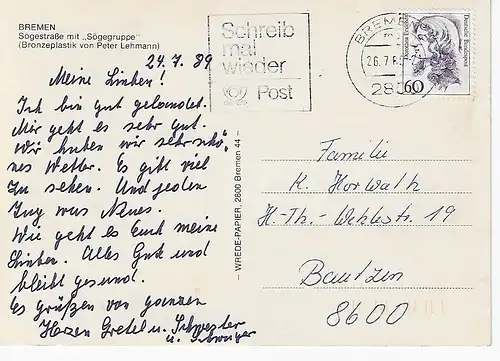 BREMEN
Sögestraße mit „Sögegruppe"
(Bronzeplastik von Peter Lehmann)
24.7.89
Meine Lieben!
Ich bin gut gelandet.
Mir geht es sehr gut.
Wir haben wir sehr schö-
nes Wetter. Es gibt viel
zu sehen. Und jeden
Tag was Neues.
Wie geht es Euch meine
Lieben. Alles Gute und
bleibt gesund.
Es grüßen von ganzen
Herzen Gretel u. Schwester
u. Schwager
– WREDE-PAPIER, 2800 Bremen 44 –
Schreib
mal
wieder
Post
BREMEN
26.7.8
28
Deutsche Bundespost
60
Familie
K. Horwath
H.-Th.- 19
Bautzen
8600